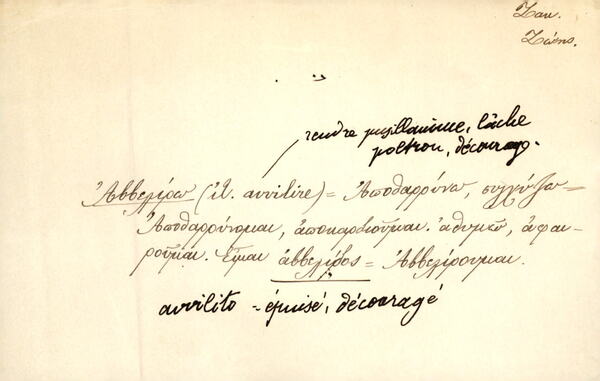 Ζακ.
Ζώης.
rendre pusillanime, lâche
poltron, décourag.
Ἀββελίρω (ἰτ. avvilire) = Ἀποθαρρύνω,
Ἀποθαρρύνομαι, ἀποκαρδιοῦμαι. ἀθυμῶ,
Εἶμαι ἀββελίδος = Ἀββελίρουμαι.
avvilito = épuisé, découragé